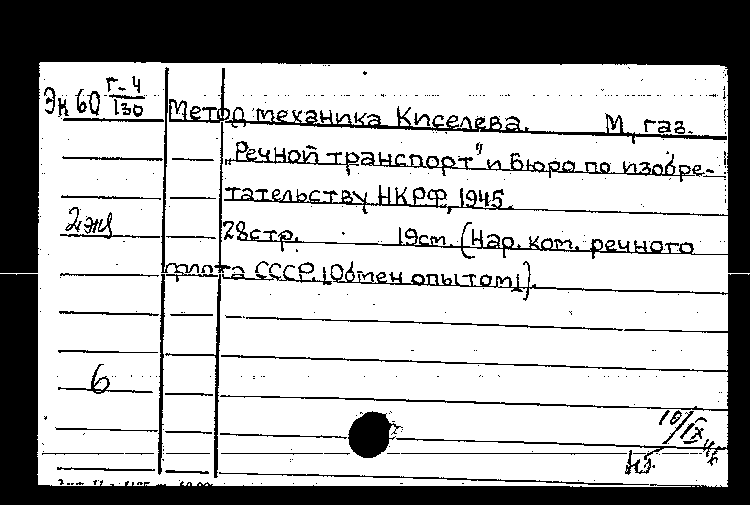 Эк 60 Г-4/130 Метод механика Киселева. М., газ.
„Речной транспорт" и бюро по изобре-
тательству НКРФ, 1945.
2 экз 28стр. 19см. (Нар. ком. речного
флота СССР. [Обмен опытом]).
6
10/IX 46